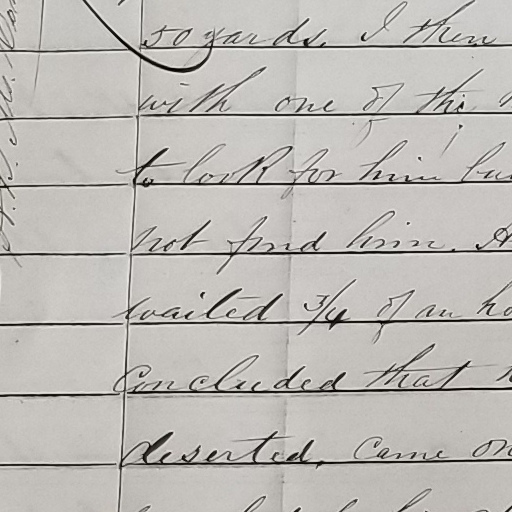 50 yards. I then
with one of the
to look for him
not find him.
waited 3/4 of an
Concluded that
deserted, Came on